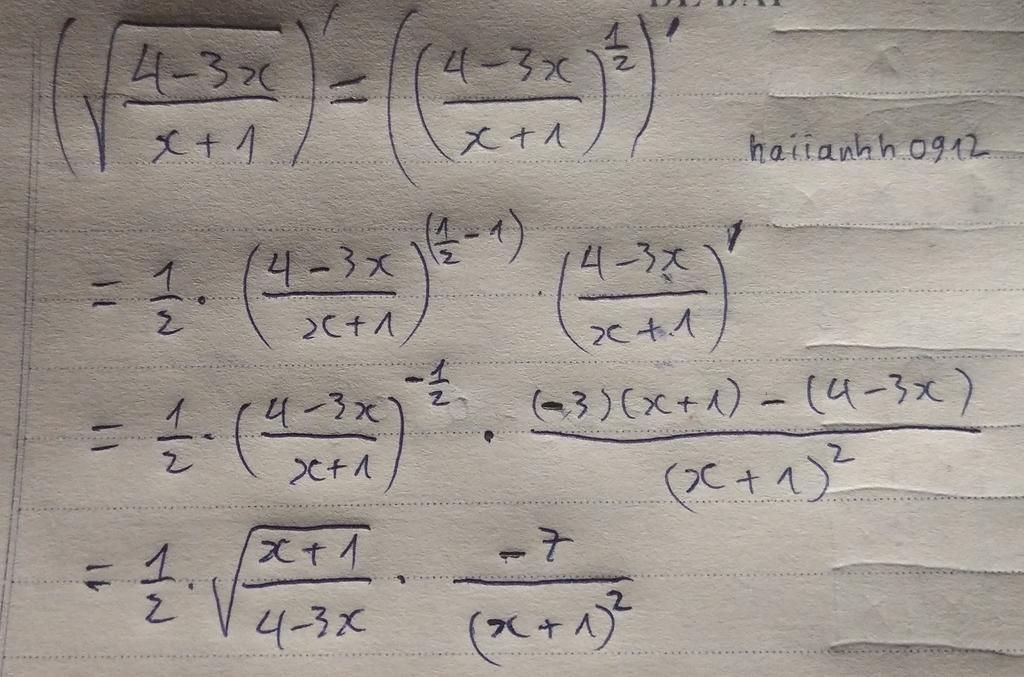 (√((4-3x)/(x+1)))' = (((4-3x)/(x+1))^(1/2))'
haiianhh0912
= 1/2 · ((4-3x)/(x+1))^(1/2 - 1) · ((4-3x)/(x+1))'
= 1/2 · ((4-3x)/(x+1))^(-1/2) · ((-3)(x+1) - (4-3x))/(x+1)^2
= 1/2 · √((x+1)/(4-3x)) · (-7)/(x+1)^2